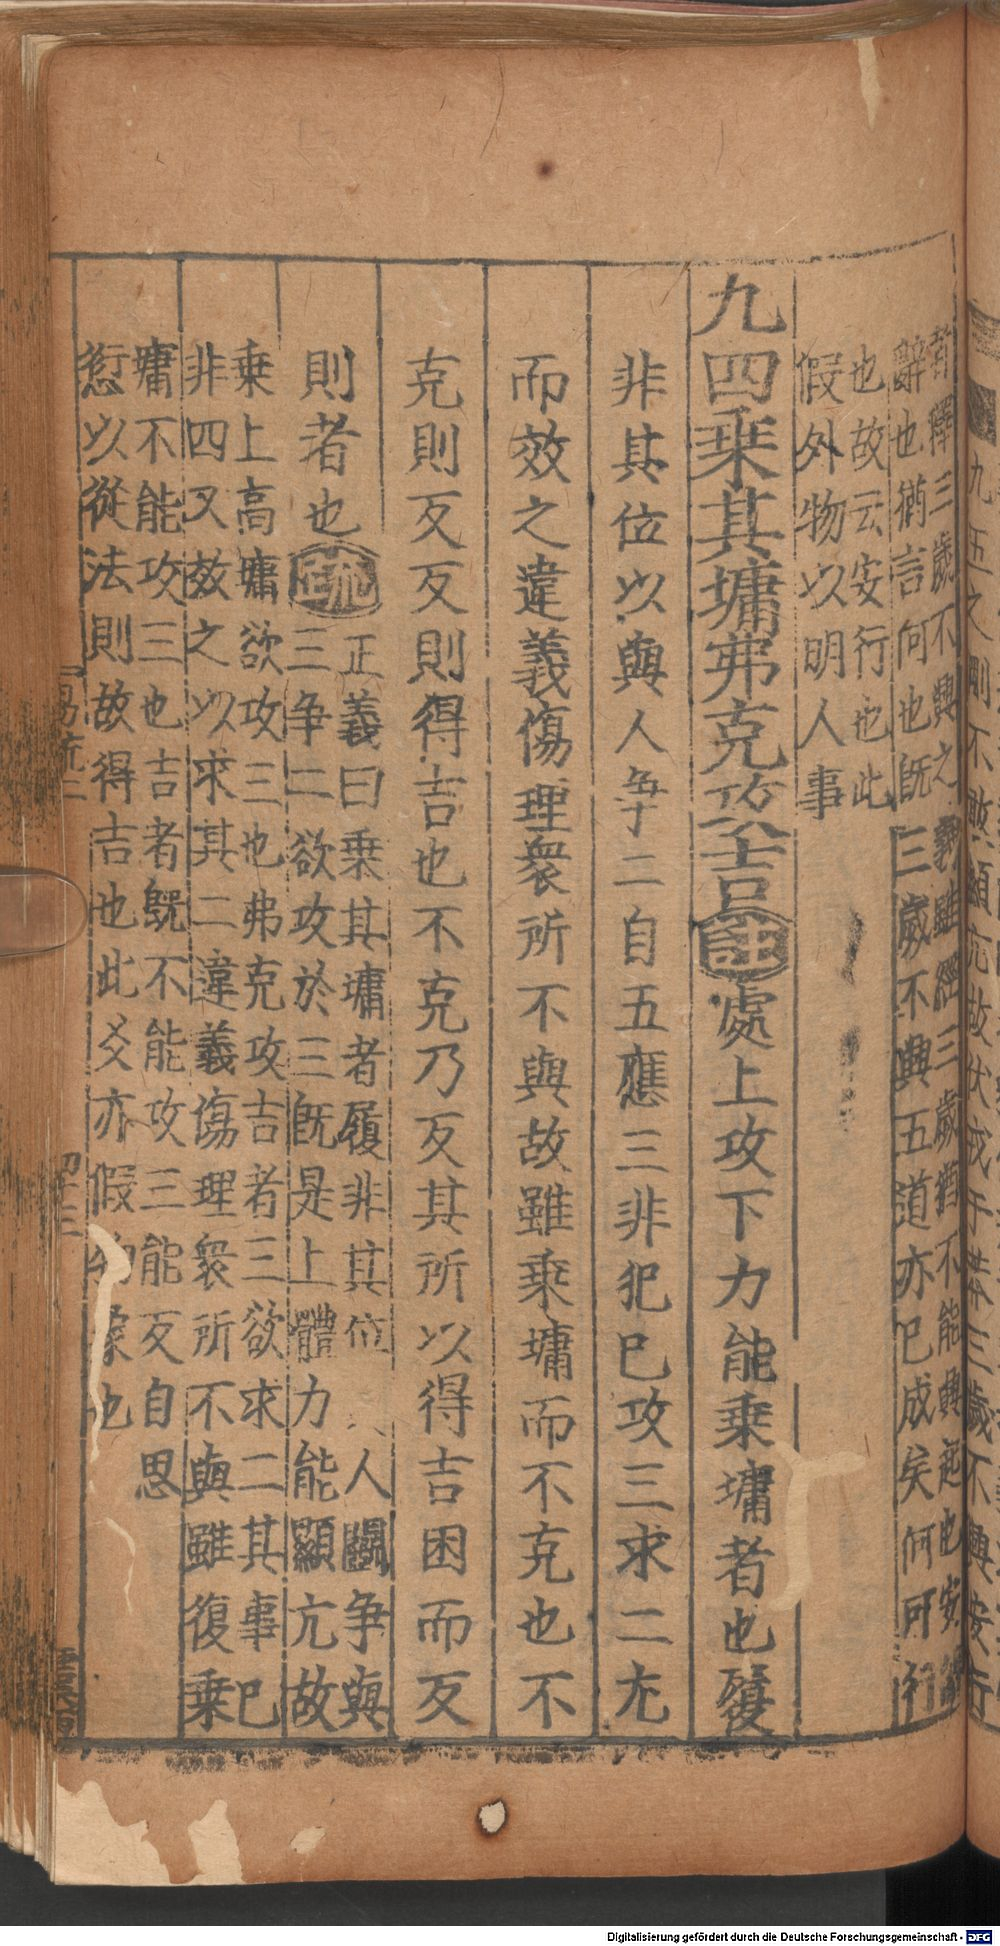 者釋三歲不興之義雖經三歲猶不能興起也安
辭也猶言何也旣三歲不興五道亦巳成矣何可行
也故云安行也此
假外物以明人事
九四乗其墉弗克攻吉註處上攻下力能乗墉者也履
非其位以與人爭二自五應三非犯巳攻三求二尤
而效之違義傷理衆所不與故雖乗墉而不克也不
克則反反則得吉也不克乃反其所以得吉困而反
則者也疏正義曰乗其墉者履非其位人鬭爭與
三爭二欲攻於三旣是上體力能顯亢故
乗上高墉欲攻三也弗克攻吉者三欲求二其事巳
非四又效之以求其二違義傷理衆所不與雖復乗
墉不能攻三也吉者旣不能攻三能反自思
愆以從法則故得吉也此爻亦假物象也
易疏二
九五之剛不敢顯亢故伏戎于莽三歲不興安行
Digitalisierung gefördert durch die Deutsche Forschungsgemeinschaft - DFG